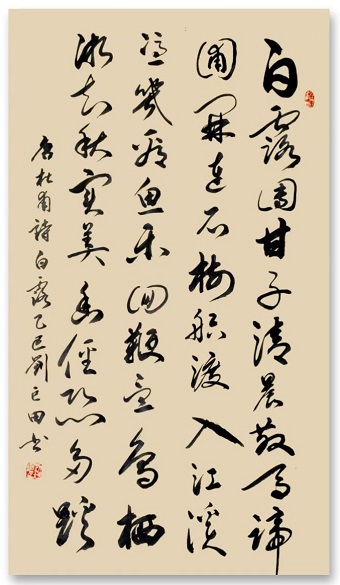 白露團甘子清晨散馬蹄
圃開連石樹船渡入江溪
憑幾看魚樂回鞭急鳥栖
漸知秋實美幽徑恐多蹊
唐杜甫詩白露乙巳劉田書